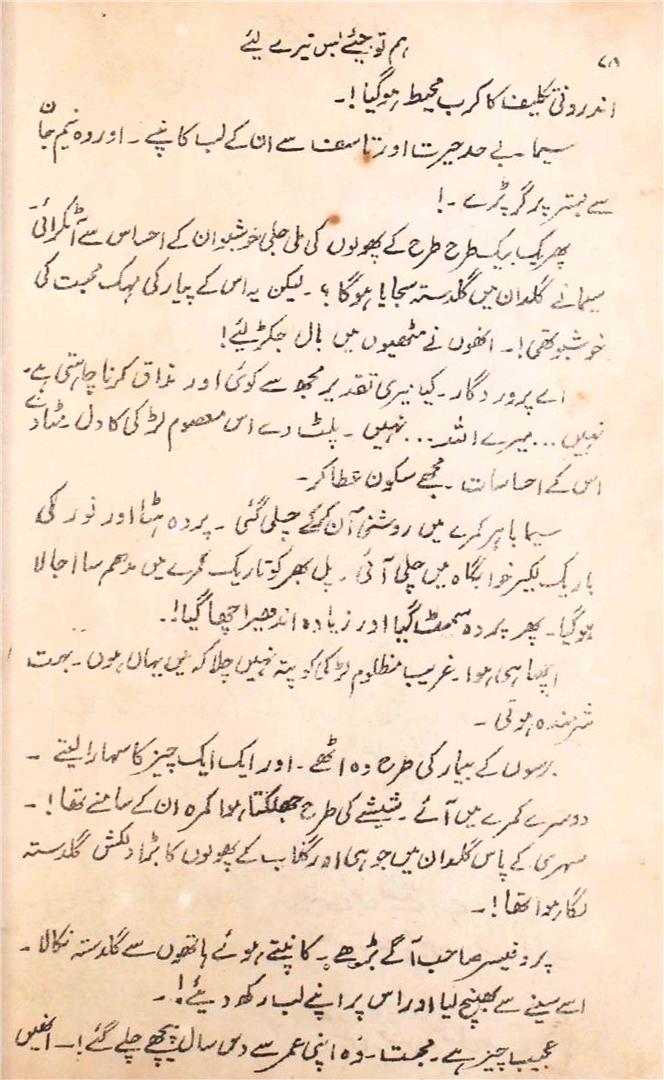 ۷۸
ہم تو جیئے بس تیرے لیئے
اندرونی تکلیف کا کرب محیط ہوگیا!۔
سیما۔ بے حد حیرت اور تاسف سے ان کے لب کانپے۔ اور وہ نیم جان
سے بستر پر گر پڑے۔!
پھر یک بیک طرح طرح کے پھولوں کی ملی جلی خوشبو ان کے احساس سے آٹکرائی۔
سیما نے گلدان میں گلدستہ سجایا ہوگا؟۔ لیکن یہ اس کے پیار کی مہک محبت کی
خوشبو تھی!۔ انھوں نے مٹھیوں میں بال جکڑ لیئے!
اے پروردگار۔ کیا میری تقدیر مجھ سے کوئی اور مذاق کرنا چاہتی ہے۔
نہیں... میرے اللہ... نہیں۔ پلٹ دے اس معصوم لڑکی کا دل۔ مٹا دے
اس کے احساسات۔ مجھے سکون عطا کر۔
سیما باہر کمرے میں روشنی آن کرکے چلی گئی۔ پردہ ہٹا اور نور کی
باریک لکیر خوابگاہ میں چلی آئی۔ پل بھر کو تاریک کمرے میں مدھم سا اجالا
ہوگیا۔ پھر پردہ سمٹ گیا اور زیادہ اندھیرا چھا گیا!۔
اچھا ہی ہوا۔ غریب مظلوم لڑکی کو پتہ نہیں چلا کہ میں یہاں ہوں۔ بہت
شرمندہ ہوتی۔
برسوں کے بیمار کی طرح وہ اٹھے۔ اور ایک ایک چیز کا سہارا لیتے۔
دوسرے کمرے میں آئے۔ شیشے کی طرح جھلکتا ہوا کمرہ ان کے سامنے تھا!۔
مسہری کے پاس گلدان میں جوہی اور گلاب کے پھولوں کا بڑا دلکش گلدستہ
لگا ہوا تھا!۔
پروفیسر صاحب آگے بڑھے۔ کانپتے ہوئے ہاتھوں سے گلدستہ نکالا۔
اسے سینے سے بھینچ لیا اور اس پر اپنے لب رکھ دیئے!۔
عجیب چیز ہے۔ محبت۔ وہ اپنی عمر سے دس سال پیچھے چلے گئے!۔ انھیں